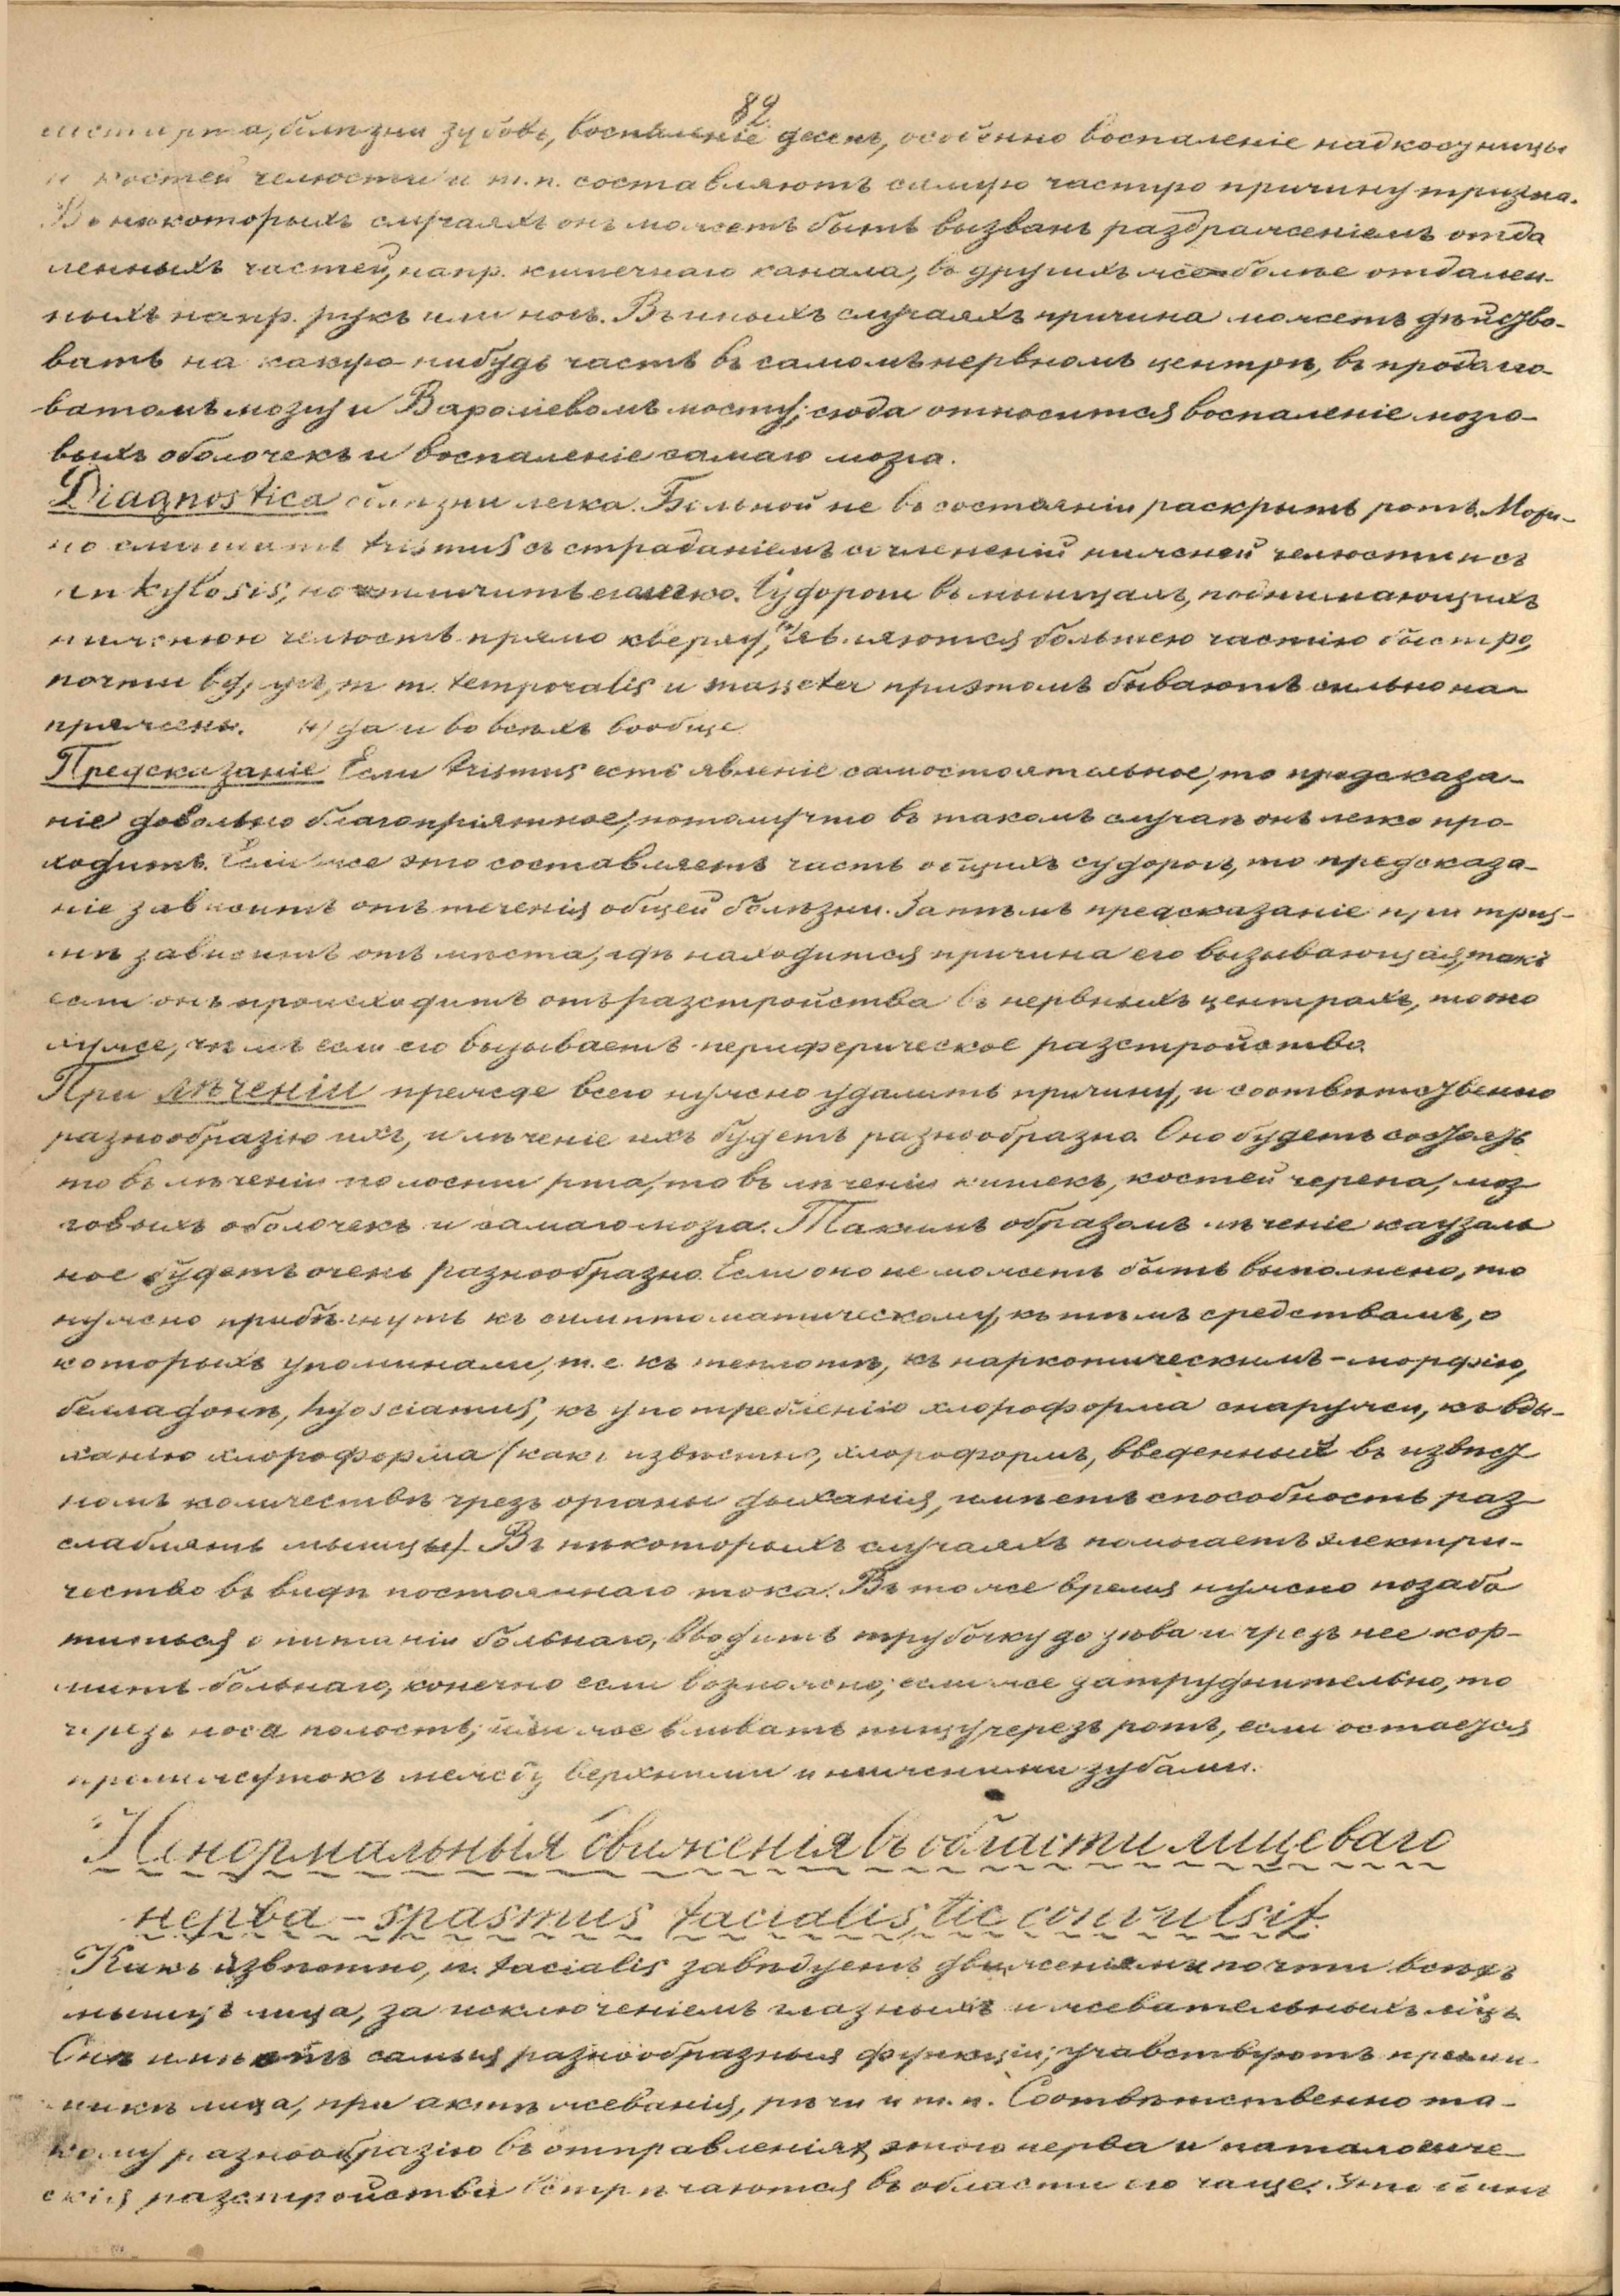 82
рта, болѣзни зубовъ, воспаленіе десенъ, особенно воспаленіе надкостницы
и костей челюсти и т.п. составляютъ самую частую причину тризма.
Въ нѣкоторыхъ случаяхъ онъ можетъ быть вызванъ раздраженіемъ отда
ленныхъ частей, напр. кишечнаго канала, въ другихъ же болѣе отдален-
ныхъ напр. рукъ или ногъ. Въ иныхъ случаяхъ причина можетъ дѣйство-
вать на какую нибудь часть въ самомъ нервномъ центрѣ, въ продолго-
ватомъ мозгу и Вароліевомъ мосту; сюда относится воспаленіе мозго-
выхъ оболочекъ и воспаленіе самаго мозга.
Diagnostica болѣзни легка. Больной не въ состояніи раскрыть ротъ. Можн-
но смѣшать trismus съ страданіемъ сочлененій нижней челюсти и съ
ankylosis, но отличить легко. Судороги въ мышцахъ, поднимающихъ
нижнюю челюсть прямо кверху, являются большею частію быстро,
почти вдругъ, m m. temporalis и masseter при этомъ бываютъ сильно на
пряжены. да и во всѣхъ вообще
Предсказаніе Если trismus есть явленіе самостоятельное, то предсказа-
ніе довольно благопріятное, потому что въ такомъ случаѣ онъ легко про-
ходитъ. Если же это составляетъ часть общихъ судорогъ, то предсказа-
ніе зависитъ отъ теченія общей болѣзни. Затѣмъ предсказаніе при триз-
мѣ зависитъ отъ мѣста, гдѣ находится причина его вызывающая, такъ
если онъ происходитъ отъ разстройства въ нервныхъ центрахъ, то оно
хуже, чѣмъ если его вызываетъ периферическое разстройство.
При лѣченіи прежде всего нужно удалить причину, и соотвѣтственно
разнообразію ихъ, и лѣченіе ихъ будетъ разнообразно. Оно будетъ состоять
то въ лѣченіи полости рта, то въ лѣченіи кишекъ, костей черепа, моз
говыхъ оболочекъ и самаго мозга. Такимъ образомъ лѣченіе каузаль
ное будетъ очень разнообразно. Если оно не можетъ быть выполнено, то
нужно прибѣгнуть къ симптоматическому, къ тѣмъ средствамъ, о
которыхъ упоминали, т.е. къ теплотѣ, къ наркотическимъ - морфію,
белладонѣ, hyosciamus, къ употребленію хлороформа снаружи, къ вды-
ханію хлороформа (какъ извѣстно, хлороформъ, введенный въ извѣст
номъ количествѣ чрезъ органы дыханія, имѣетъ способность раз
слаблять мышцы). Въ нѣкоторыхъ случаяхъ помогаетъ электри-
чество въ видѣ постояннаго тока. Въ то же время нужно позабо
титься о питаніи больнаго, вводить трубочку до зѣва и чрезъ нее кор-
мить больнаго, конечно если возможно; если же затруднительно, то
чрезъ носа полость; или же вливать пищу черезъ ротъ, если остается
промежутокъ между верхними и нижними зубами.
Ненормальныя движенія въ области лицеваго
нерва - spasmus facialis, tic convulsif.
Какъ извѣстно, n. facialis завѣдуетъ движеніями почти всѣхъ
мышцъ лица, за исключеніемъ глазныхъ и жевательныхъ мцъ.
Онѣ самыя разнообразныя функціи; участвуютъ при ми
микѣ лица, при актѣ жеванія, рѣчи и т.п. Соотвѣтственно та-
кому разнообразію въ отправленіяхъ этого нерва и патологиче
скія разстройства встрѣчаются въ области его чаще.